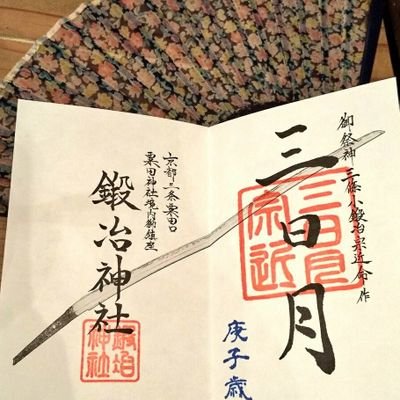 御祭神 三條小鍛冶宗近命作
三日月
三日月
宗近
庚子歳
京都三条粟田口
粟田神社境内御鎮座
鍛冶神社
鍛冶
神社